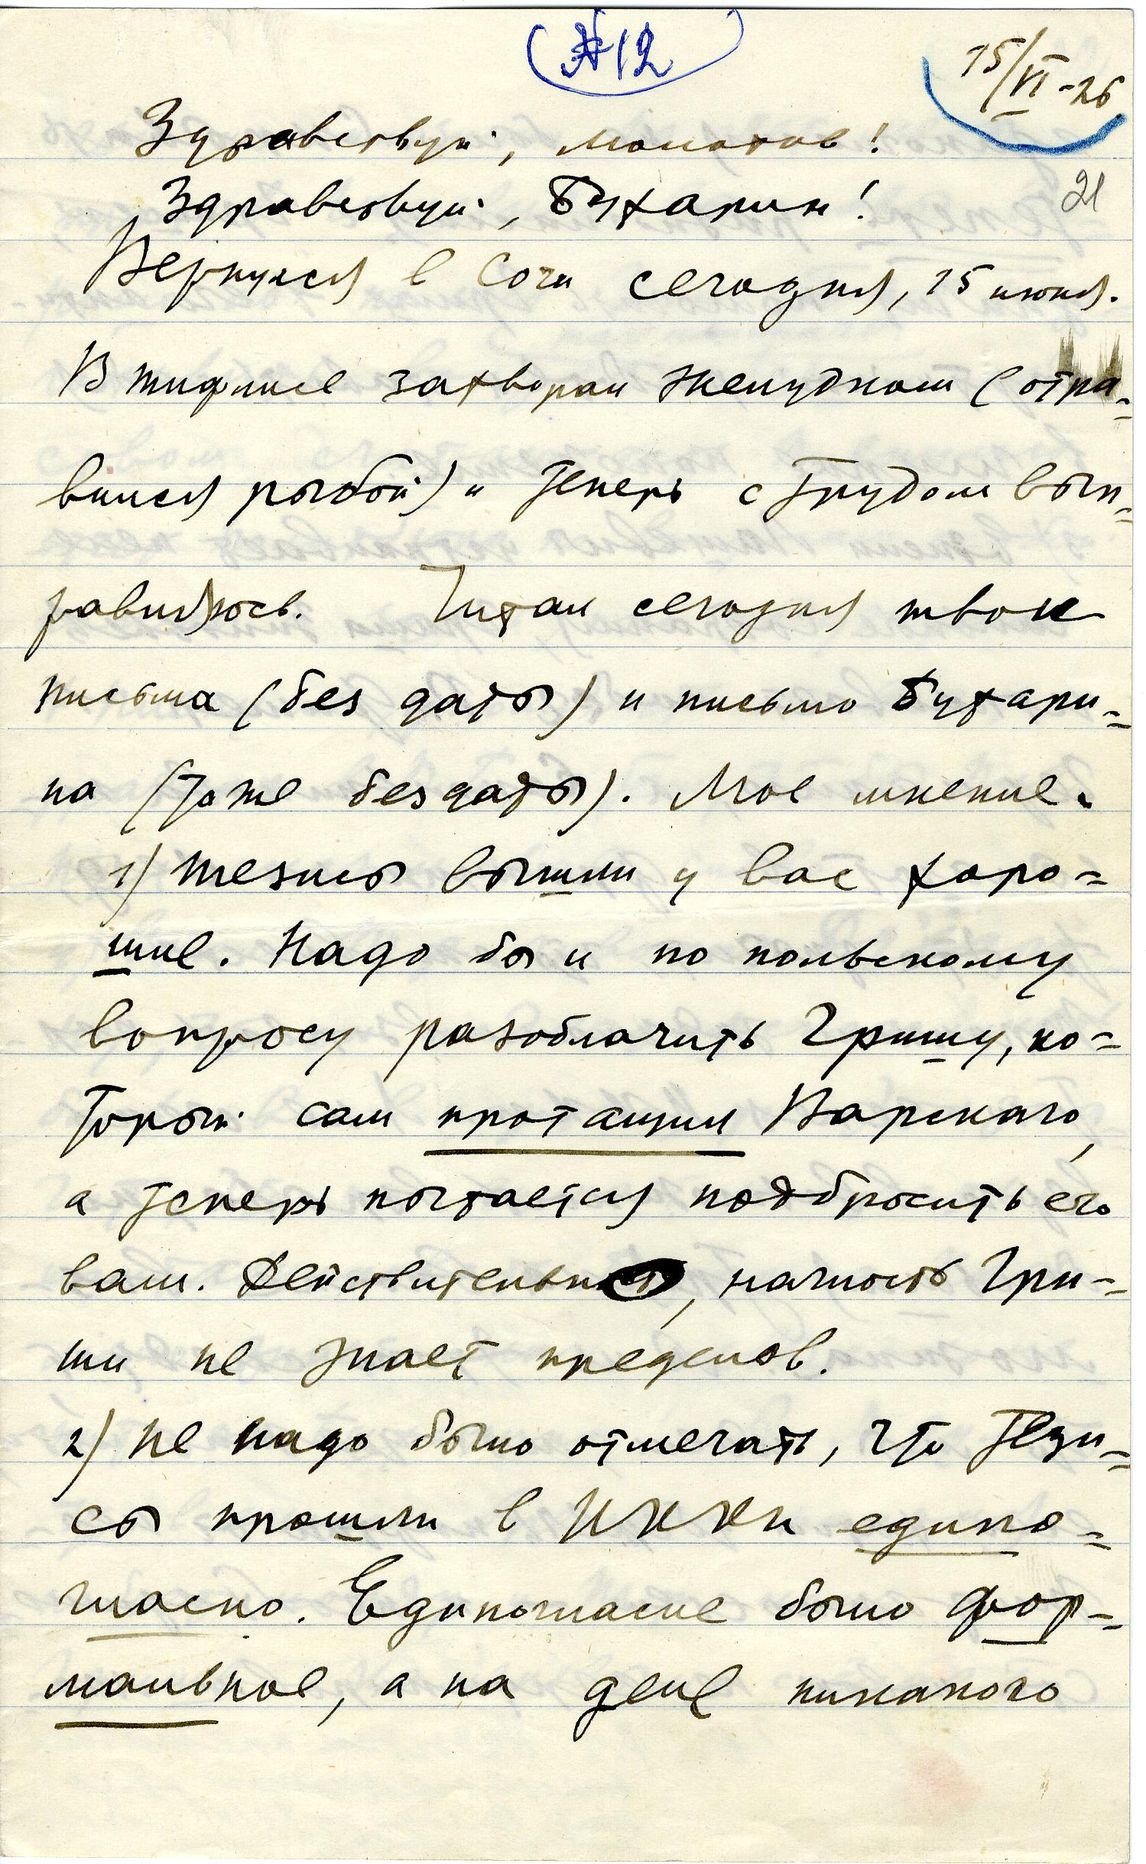 (№12)
15/VI-26
21
Здравствуй, Молотов!
Здравствуй, Бухарин!
Вернулся в Сочи сегодня, 15 июня.
В Тифлисе захворал желудком (отра=
вился рыбой) и теперь с трудом вып=
равляюсь. Читал сегодня твои
письма (без даты) и письмо Бухари=
на (тоже без даты). Мое мнение.
1) Тезисы вышли у вас хоро=
шие. Надо бы и по польскому
вопросу разоблачить Гришу, ко=
торый сам протащил Варского,
а теперь пытается подбросить его
вам. Действительно, наглость Гри=
ши не знает пределов.
2) Не надо было отмечать, что тези=
сы прошли в ИККИ едино=
гласно. Единогласие было фор=
мальное, а на деле никакого